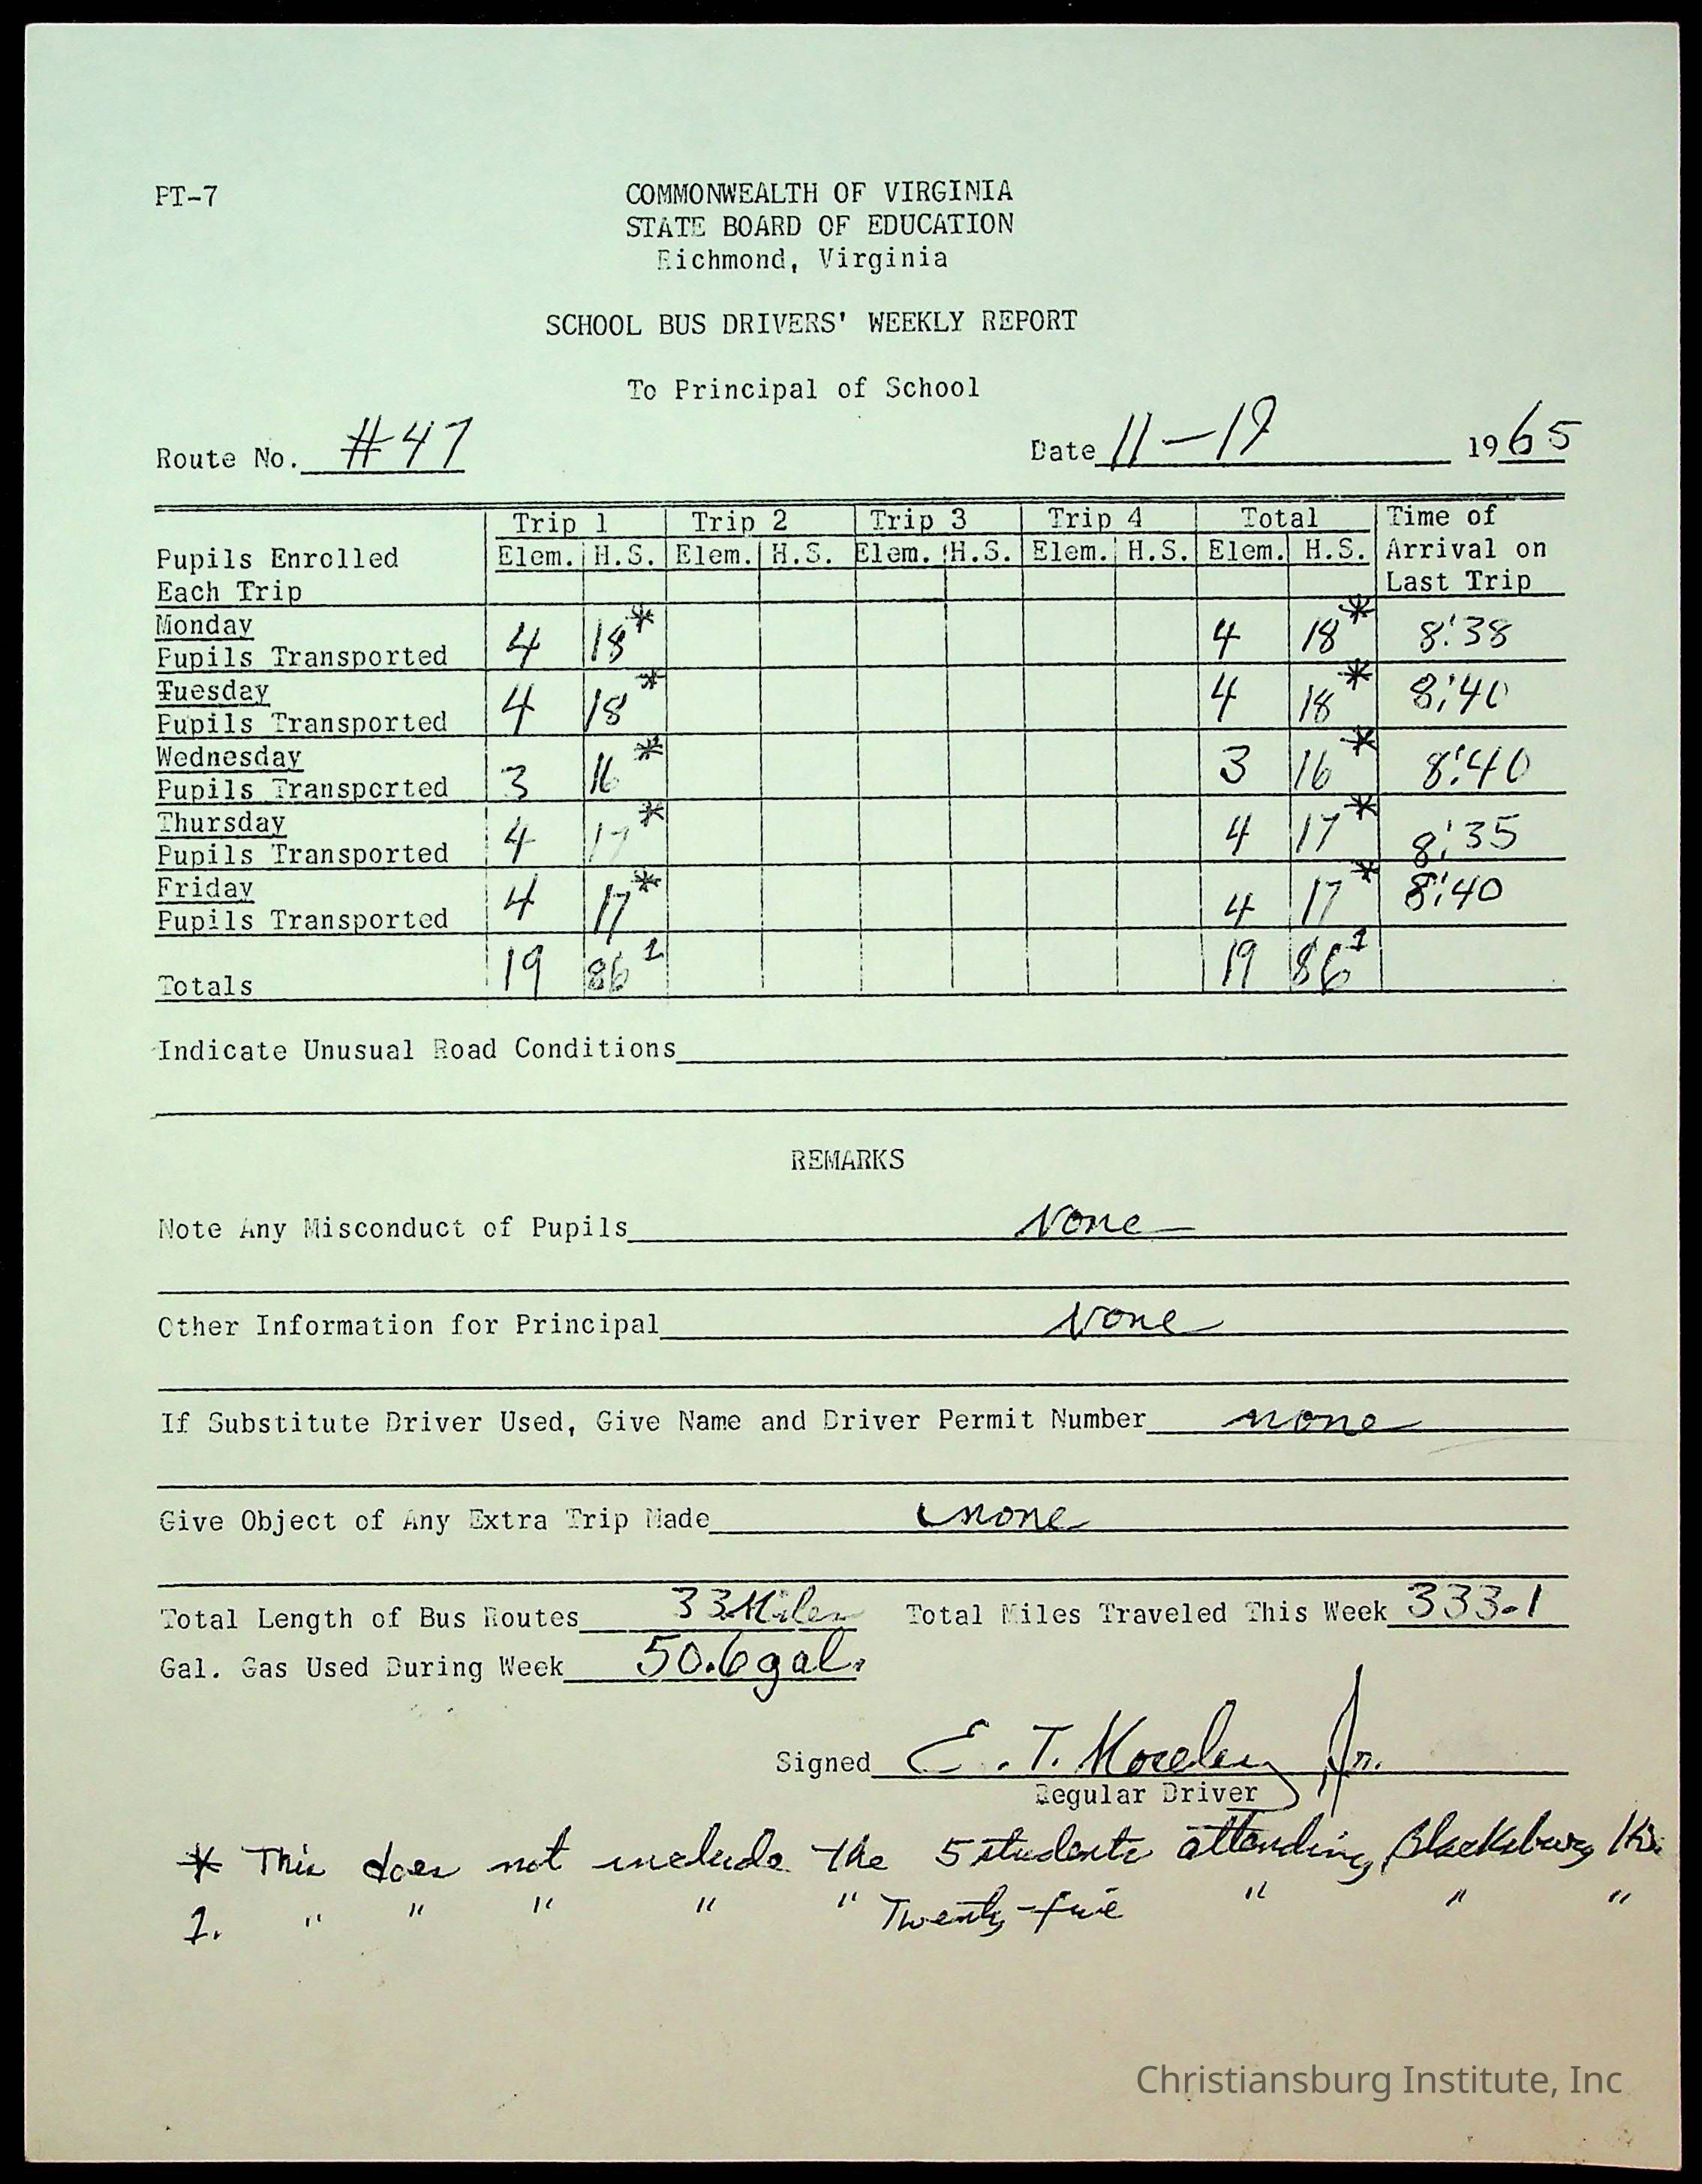 PT-7
COMMONWEALTH OF VIRGINIA
STATE BOARD OF EDUCATION
Richmond, Virginia
SCHOOL BUS DRIVERS' WEEKLY REPORT
To Principal of School
Route No. #47 Date 11-19 1965
Trip 1 Trip 2 Trip 3 Trip 4 Total Time of
Pupils Enrolled Elem. H.S. Elem. H.S. Elem. H.S. Elem. H.S. Elem. H.S. Arrival on
Each Trip Last Trip
Monday
Pupils Transported 4 18* 4 18* 8:38
Tuesday
Pupils Transported 4 18* 4 18* 8:40
Wednesday
Pupils Transported 3 16* 3 16* 8:40
Thursday
Pupils Transported 4 17* 4 17* 8:35
Friday
Pupils Transported 4 17* 4 17* 8:40
Totals 19 86 1 19 86 1
Indicate Unusual Road Conditions
REMARKS
Note Any Misconduct of Pupils None
Other Information for Principal None
If Substitute Driver Used, Give Name and Driver Permit Number none
Give Object of Any Extra Trip Made none
Total Length of Bus Routes 33 Miles Total Miles Traveled This Week 333.1
Gal. Gas Used During Week 50.6 gal.
Signed E. T. Jr.
Regular Driver
* This does not include the 5 students attending Blacksburg
1. " " " " " Twenty-five " " "
Christiansburg Institute, Inc